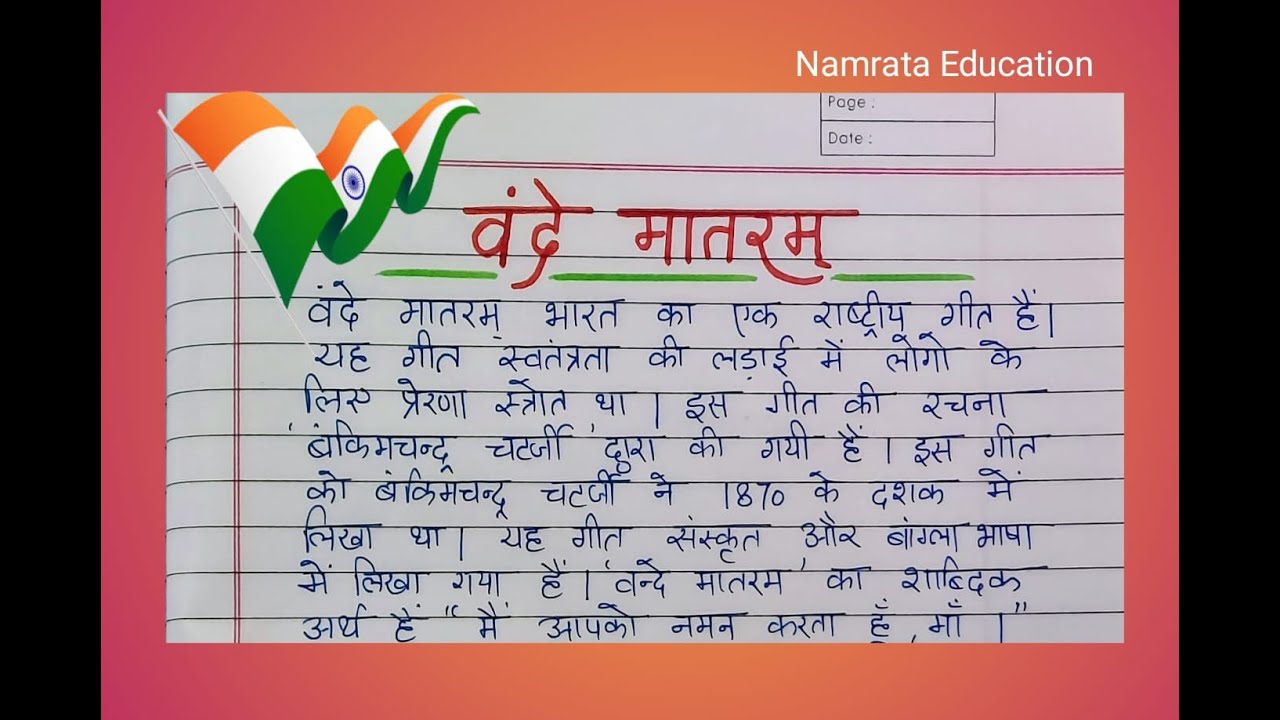 Namrata Education
Page :
Date :
वंदे मातरम्
वंदे मातरम् भारत का एक राष्ट्रीय गीत हैं।
यह गीत स्वतंत्रता की लड़ाई में लोगो के
लिए प्रेरणा स्त्रोत था। इस गीत की रचना
'बंकिमचन्द्र चटर्जी' द्वारा की गयी हैं। इस गीत
को बंकिमचन्द्र चटर्जी ने 1870 के दशक में
लिखा था। यह गीत संस्कृत और बांग्ला भाषा
में लिखा गया हैं। 'वन्दे मातरम' का शाब्दिक
अर्थ हैं "मैं आपको नमन करता हूँ, माँ।"